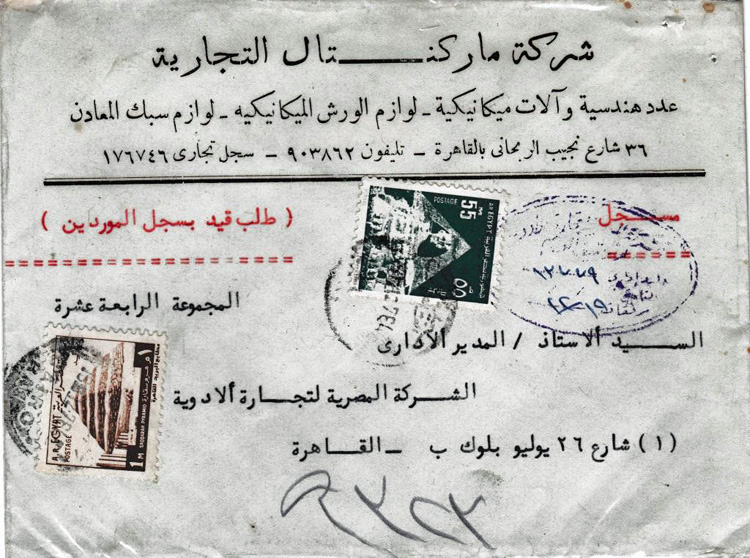 شركة ماركنتال التجارية
عدد هندسية وآلات ميكانيكية - لوازم الورش الميكانيكيه - لوازم سبك المعادن
٣٦ شارع نجيب الريحانى بالقاهرة - تليفون ٩٠٣٨٦٢ - سجل تجارى ١٧٦٧٤٦
مسجل
( طلب قيد بسجل الموردين )
POSTAGE 55 M
A R EGYPT
المجموعة الرابعة عشرة
السيد الاستاذ / المدير الادارى
الشركة المصرية لتجارة الادوية
(١) شارع ٢٦ يوليو بلوك ب - القاهرة
A.R.EGYPT
POSTAGE
1M
SAKKARA PYRAMID